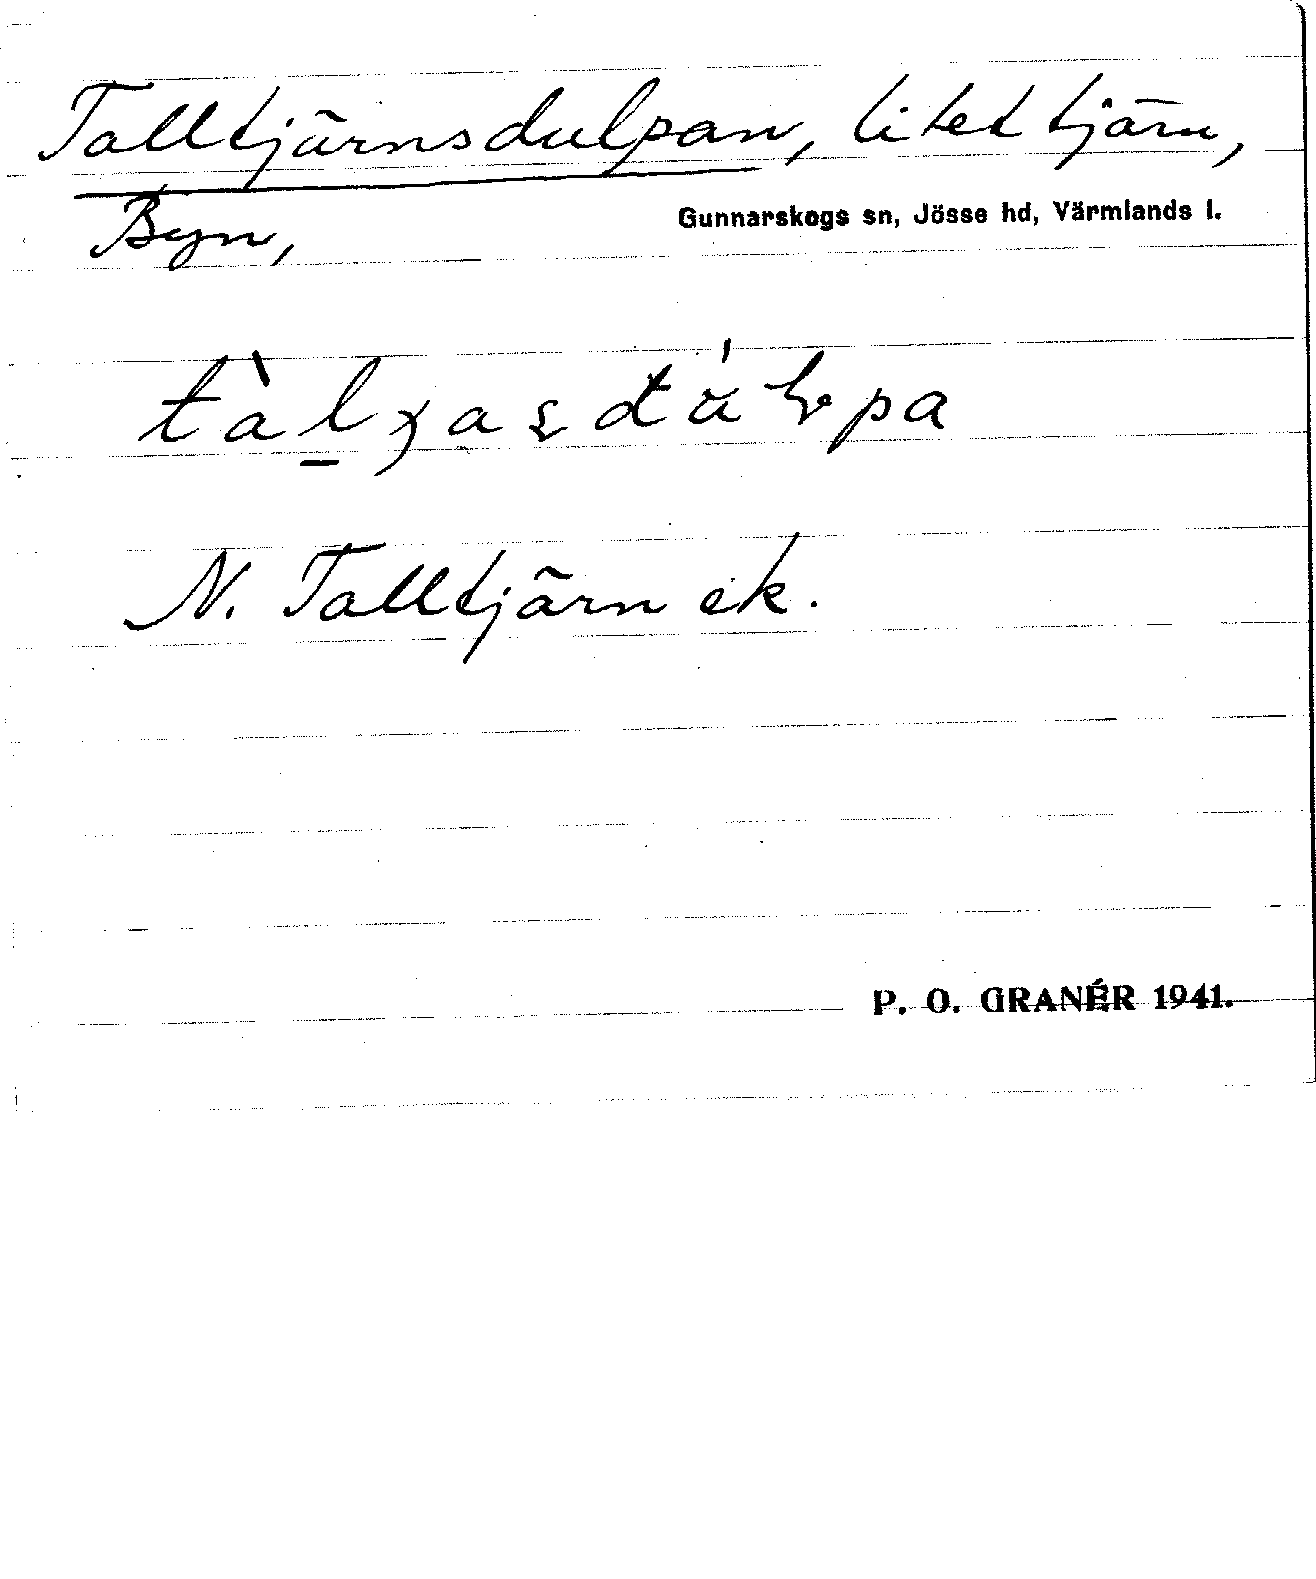 Talltjärnsdulpan, litet tjärn,
Byn, Gunnarskogs sn, Jösse hd, Värmlands l.
N. Talltjärn ek.
P. O. GRANÉR 1941.